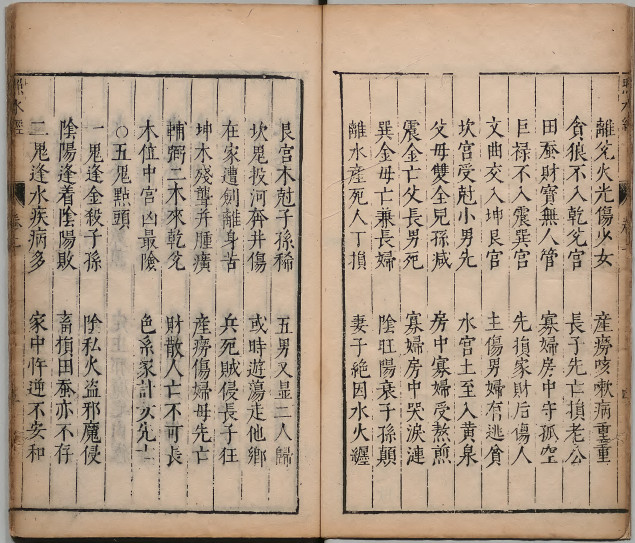 離兌火光傷少女　產癆咳嗽病重重
貪狼不入乾兌宮　長子先亡損老公
田蚕財寶無人管　寡婦房中守孤空
巨祿不入震巽宮　先損家財后傷人
文曲交入坤艮宮　主傷男婦有逃貧
坎宮受尅小男先　水宮土至入黃泉
父母雙全兒孫减　房中寡婦受熬煎
震金亡父長男死　寡婦房中哭淚漣
巽金母亡兼長婦　陰旺陽衰子孫顛
離水產死人丁損　妻子絶因水火纒
艮宮木尅子孫稀　五男又显二人歸
坎鬼投河奔井傷　或時遊蕩走他鄉
在家遭劍離身苦　兵死賊侵長子狂
坤木殘聾并腫癀　產癆傷婦母先亡
輔弼二木來乾兌　財散人亡不可長
木位中宮凶最隂　色系家計女先亡
○五鬼點頭
一鬼逢金殺子孫　陰私火盗邪魔侵
陰陽逢着陰陽敗　畜損田蚕亦不存
二鬼逢水疾病多　家中忤逆不安和
照水經
卷二